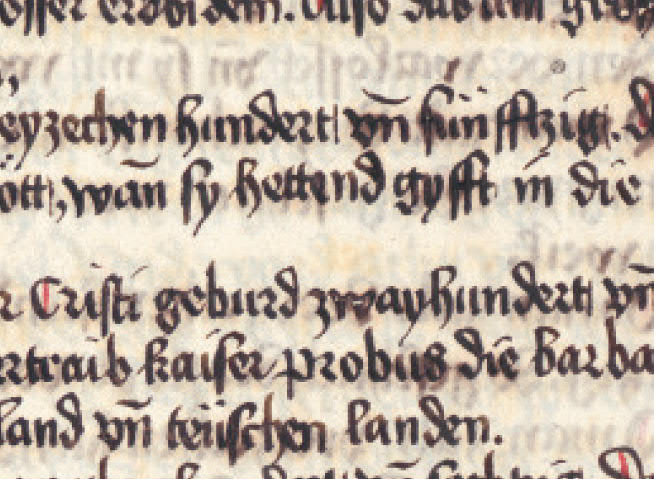 osser erdbidem. Also das ain gros
eyzechen hundert vn̄ fünfftzig. d
ött, wān sy hettend gyfft in die
r Cristi geburd zwayhundert vn̄
ertraib kaiser probus die barba
land vn̄ teüschen landen.